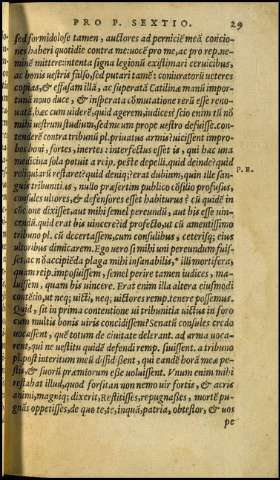 PRO P. SEXTIO. 29
sed formidolose tamen, auctores ad perniciē meā concio-
nes haberi quotidie contra me: uocē pro me, ac pro rep. ne-
minē mittere: intenta signa legionū existimari ceruicibus,
ac bonis uestris falso, sed putari tamē: coniuratorū ueteres
copias, & effusam illā, ac superatā Catilinae manū impor-
tunā nouo duce, & insperata cōmutatione rerū esse reno-
uatā. haec cum uiderē, quid agerem, iudices? scio enim tū nō
mihi uestrum studium, sed meum prope uestro defuisse. con-
tenderē contra tribunū pl. priuatus armis? uicissent improb
bos boni, fortes, inertes: interfectus esset is, qui hac una
medicina sola potuit a reip. peste depelli. quid deinde? quid
reliqui
arū restaret? quid deniq; erat dubium, quin ille san-
P. R.
guis tribunitius, nullo praesertim publico cōsilio profusus,
consules ultores, & defensores esset habiturus? cū quidē in
cōcione dixisset, aut mihi semel pereundū, aut bis esse uin-
cendū. quid erat bis uincere? id profecto, ut cū amentissimo
tribuno pl. cū decertassem, cum consulibus, ceterisq; eius
ultoribus dimicarem. Ego uero si mihi uni pereundum fuis-
set, ac nō accipiēda plaga mihi insanabilis, illi mortifera,
quam reip. imposuissem, semel perire tamen iudices, ma-
luissem, quam bis uincere. Erat enim illa altera eiusmodi
contētio, ut neq; uicti, neq; uictores remp. tenere possemus.
Quid, si in prima contentione ui tribunitia uictus in foro
cum multis bonis uiris concidissem? Senatū consules credo
uocassent, quē totum de ciuitate delerant. ad arma uoca-
rent, qui ne uestitu quidē defendi remp. siuissent. a tribuno
pl. post interitum meū dissedissent, qui eandē horā meae pe-
stis, & suorū praemiorum esse uoluissent. Vnum enim mihi
restabat illud, quod forsitan non nemo uir fortis, & acris
animi, magniq; dixerit, Restitisses, repugnasses, mortē pu-
gnās oppetisses. de quo te, te, inquā, patria, obtestor, & uos
pe